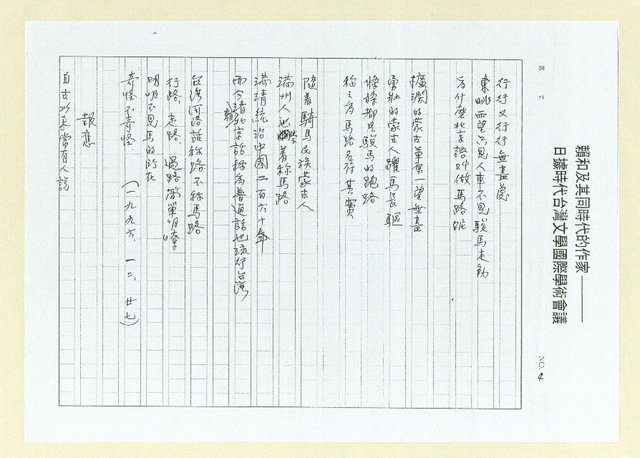 賴和及其同時代的作家——
日據時代台灣文學國際學術會議
NO. 4
行行又行行無盡處
東眺西望只見人車不見駿馬走動
為什麼北京語叫做馬路呢
遼闊的蒙古草原一望無盡
勇壯的蒙古人躍馬長驅
條條都是駿馬的跑路
稱之為馬路名符其實
隨着騎馬民族蒙古人
滿州人也跟着稱馬路
滿清統治中國二百六十年
而今諸北京話稱為普通話也流行台灣
台灣河洛話稱路不稱馬路
行路、走路、過路簡單明嘹
明明不見馬的所在
奇怪不奇怪
(一九九六、一二、廿七)
報應
自古以來常有人說